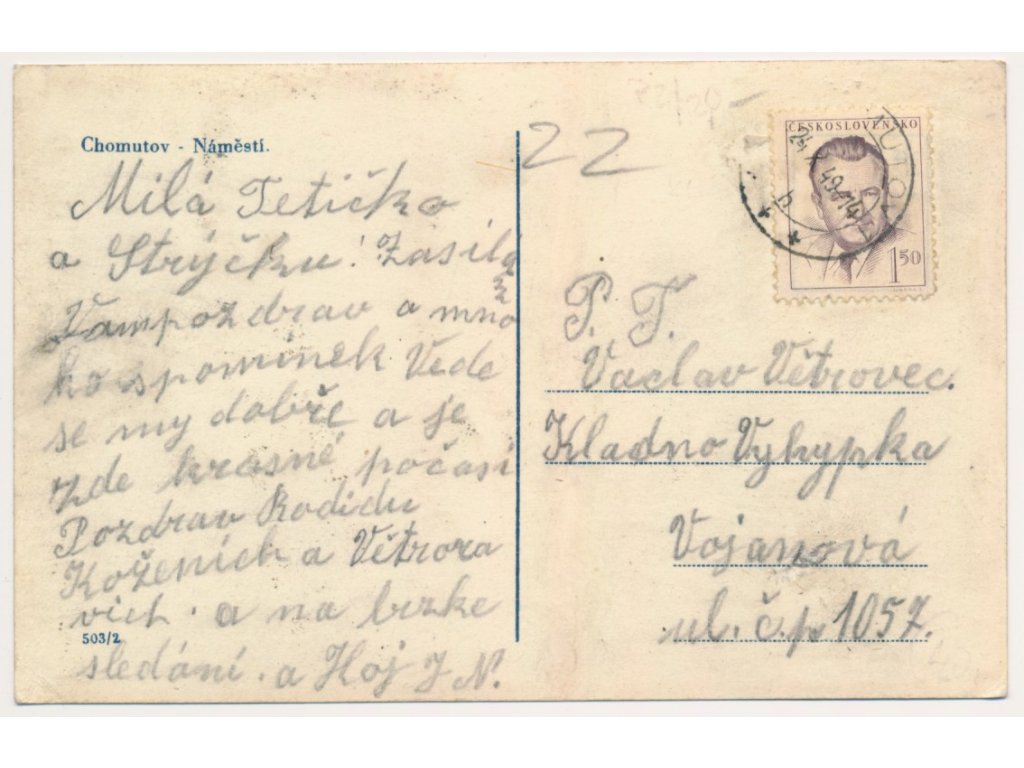 Chomutov - Náměstí.
Milá Tetičko
a Strýčku! Zasíla
Vam pozdrav a mno
ho spomínek Vede
se my dobře a je
zde krasné počasi
Pozdrav Rodidu
Koženich a Větrora
vich. a na brzke
sledání. a Hoj J N.
503/2
22
ČESKOSLOVENSKO
1.50
P. T.
Vaclav Větrovec.
Kladno Vyhypka
Vojanová
ul. č.p. 1057.